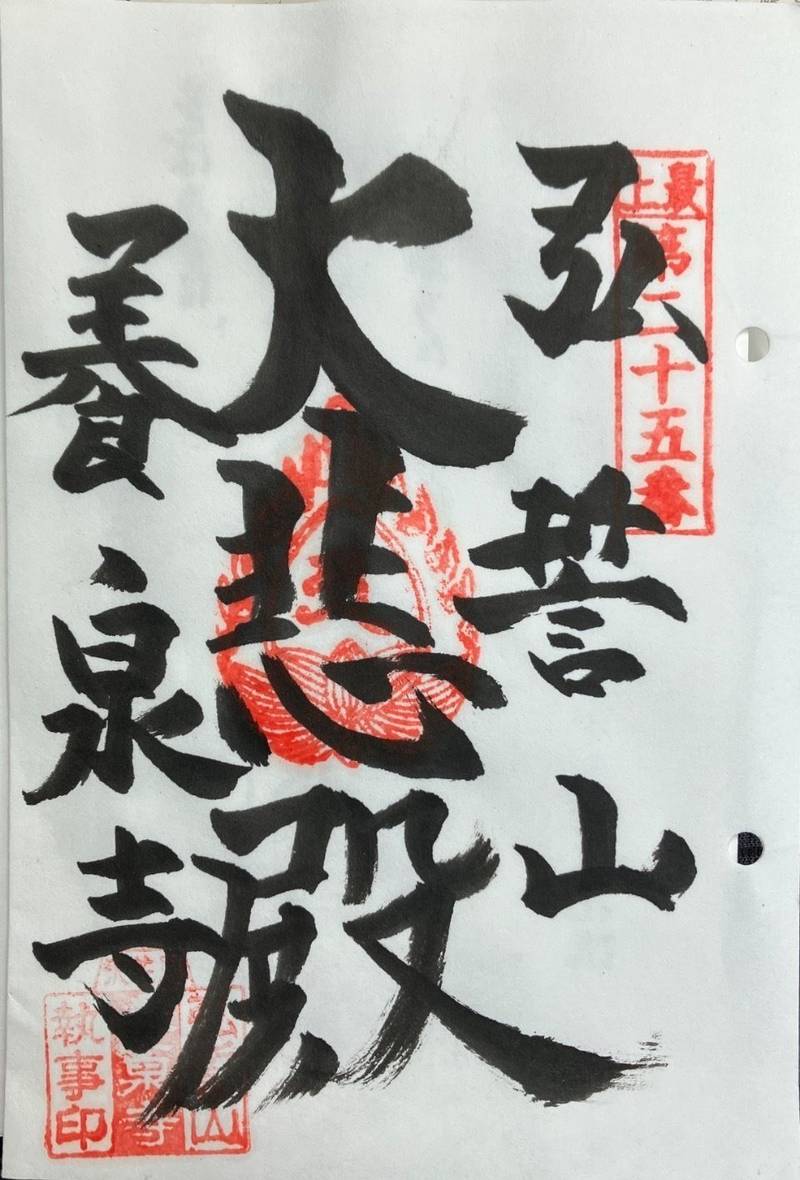 最上
第二十五番
弘誓山
大悲殿
養泉寺
弘誓山
養泉寺
執事印